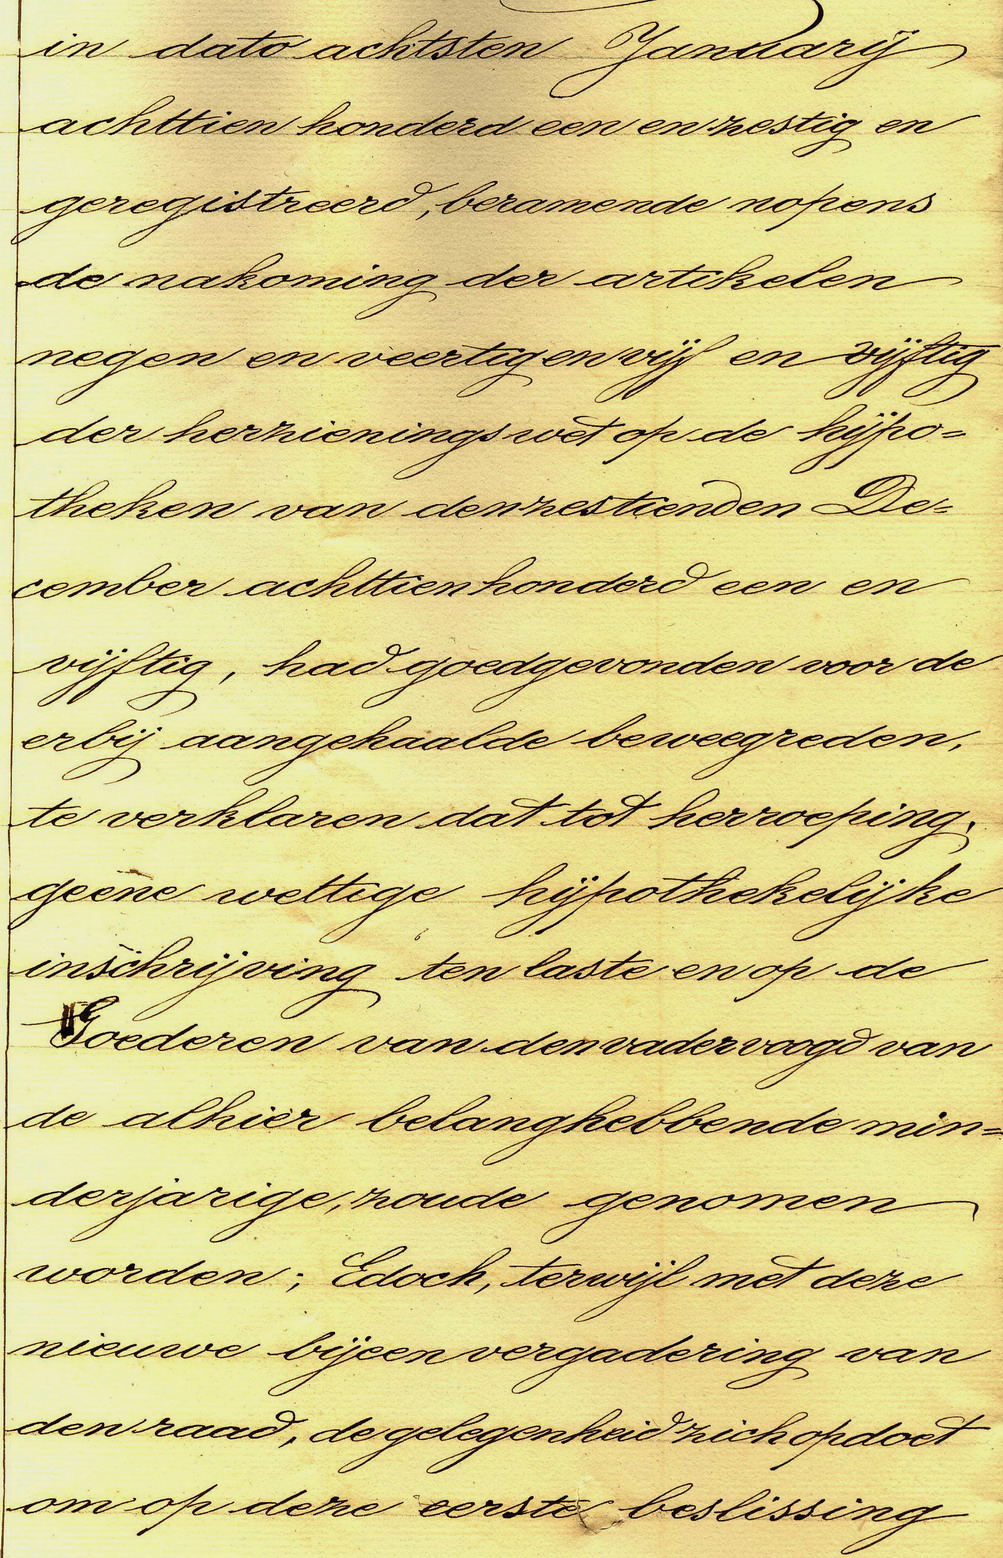 in dato achtsten January
achttien honderd een en zestig en
geregistreerd, beramende nopens
de nakoming der artikelen
negen en veertig en vijf en vijftig
der herzienings wet op de hÿpo=
theken van den zestienden De=
cember achttien honderd een en
vijftig, had goedgevonden voor de
erbij aangehaalde beweegreden,
te verklaren dat tot herroeping,
geene wettige hÿpothekelijke
inschrijving ten laste en op de
Goederen van den vader voogd van
de alhier belanghebbende min=
derjarige, zoude genomen
worden; Edoch, terwijl met deze
nieuwe bijeenvergadering van
den raad, de gelegenheid zich opdoet
om op deze eerste beslissing